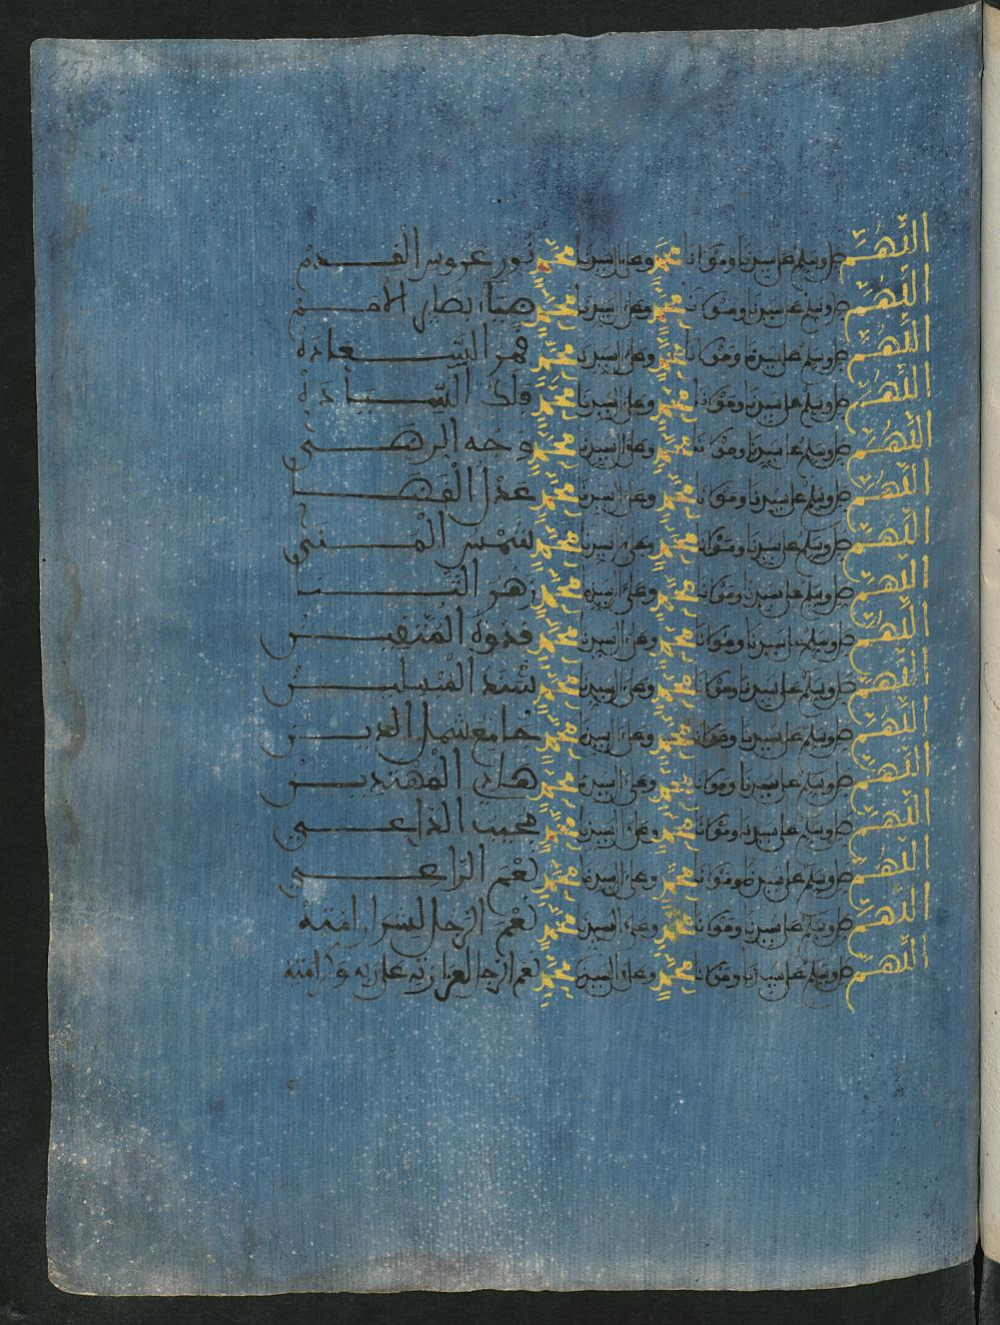 153
اللهم صل وسلم على سيدنا ومولانا محمد وعلى ال سيدنا محمد نور عروس القدم
اللهم صل وسلم على سيدنا ومولانا محمد وعلى ال سيدنا محمد
اللهم صل وسلم على سيدنا ومولانا محمد وعلى ال سيدنا محمد قمر السعادة
اللهم صل وسلم على سيدنا ومولانا محمد وعلى ال سيدنا محمد فلك السيادة
اللهم صل وسلم على سيدنا ومولانا محمد وعلى ال سيدنا محمد وجه الرضى
اللهم صل وسلم على سيدنا ومولانا محمد وعلى ال سيدنا محمد عدل القضا
اللهم صل وسلم على سيدنا ومولانا محمد وعلى ال سيدنا محمد شمس المنى
اللهم صل وسلم على سيدنا ومولانا محمد وعلى ال سيدنا محمد زهر
اللهم صل وسلم على سيدنا ومولانا محمد وعلى ال سيدنا محمد قدوة المتقين
اللهم صل وسلم على سيدنا ومولانا محمد وعلى ال سيدنا محمد
اللهم صل وسلم على سيدنا ومولانا محمد وعلى ال سيدنا محمد جامع شمل الدين
اللهم صل وسلم على سيدنا ومولانا محمد وعلى ال سيدنا محمد هادي المهتدين
اللهم صل وسلم على سيدنا ومولانا محمد وعلى ال سيدنا محمد مجيب الداعي
اللهم صل وسلم على سيدنا ومولانا محمد وعلى ال سيدنا محمد نعم الراعي
اللهم صل وسلم على سيدنا ومولانا محمد وعلى ال سيدنا محمد نعم الرجل لشرار امته
اللهم صل وسلم على سيدنا ومولانا محمد وعلى ال سيدنا محمد نعم الرجل